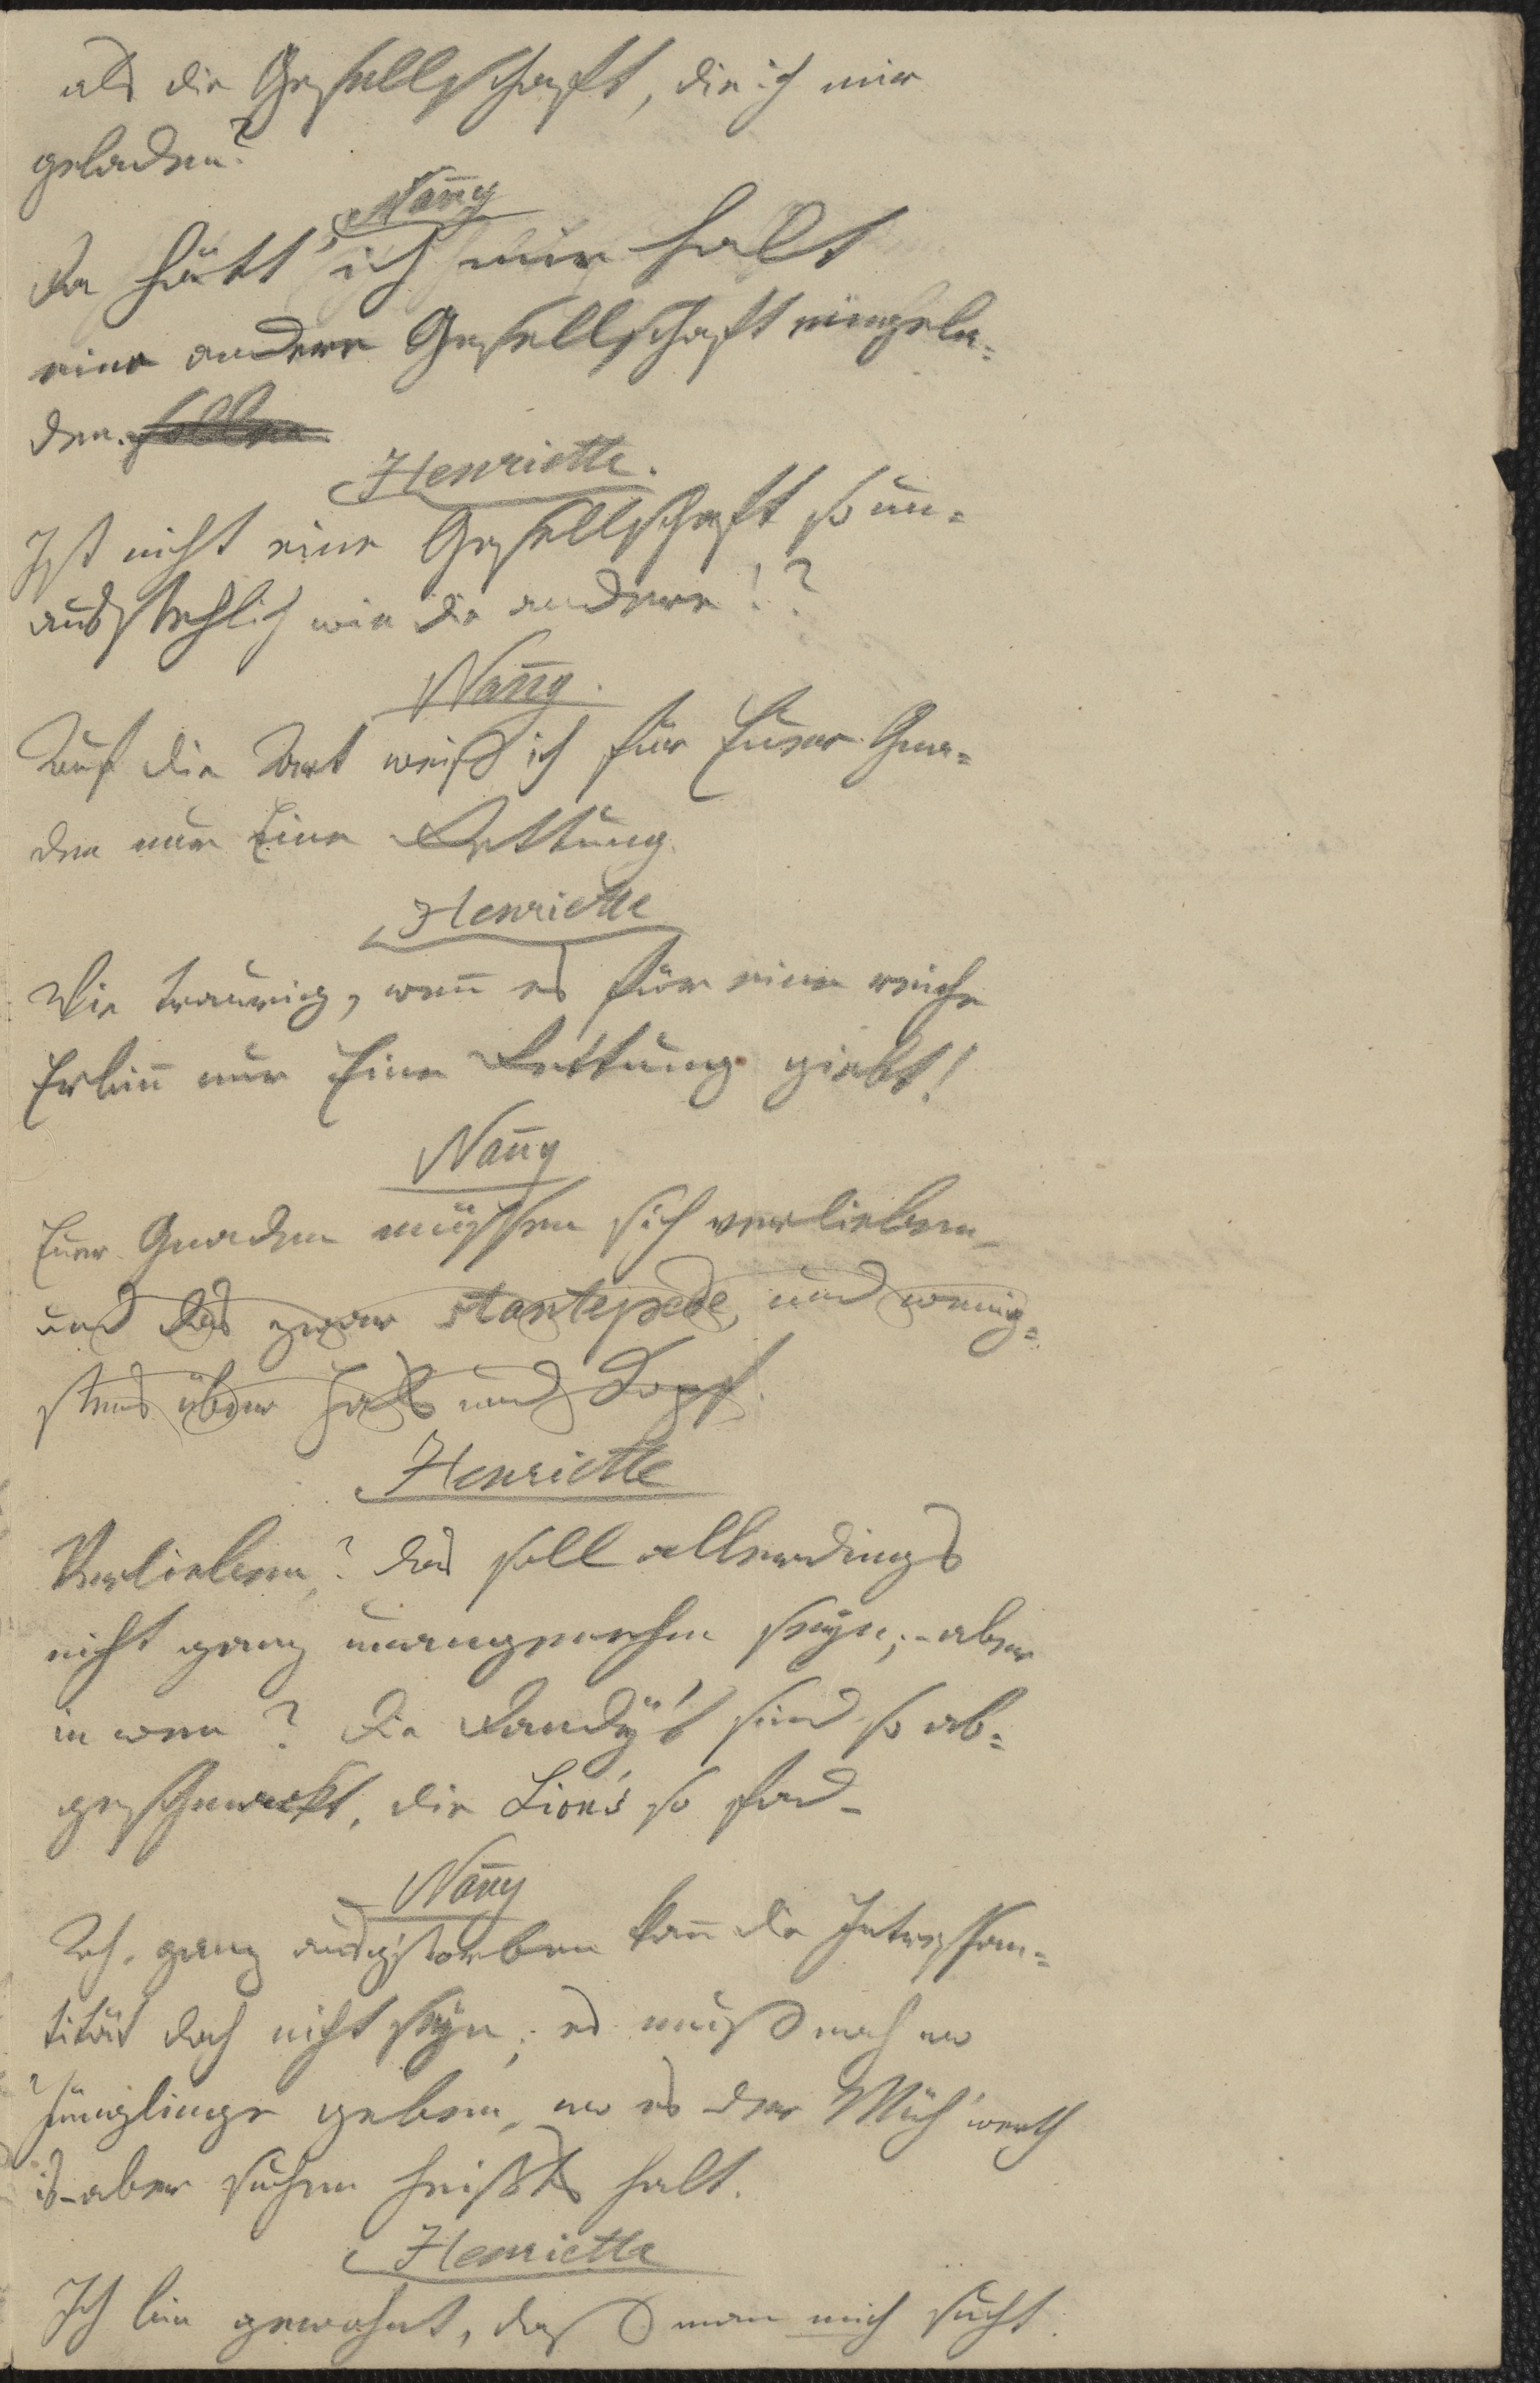 als die Gesellschaft, die ich mir
geladen?
Nan̄y
Da hätt' ich mir halt
eine andere Gesellschaft eingela=
den. sollen.
Henriette.
Ist nicht eine Gesellschaft so un=
ausstehlich wie die andere!?
Nan̄y.
Auf die Art weiß ich für Euer Gna=
den nur Eine Rettung.
Henriette
Wie traurig, wen̄ es für eine reiche
Erbin̄ nur Eine Rettung giebt!
Nan̄y
Euer Gnaden müssen sich verlieben_
und das zwar stantepede, und wenig=
stens über Hals und Kopf.
Henriette
Verlieben? das soll allerdings
nicht ganz unangenehm seyn; – aber
in wen? Die Dandy's sind so ab=
geschmackt, die Lion's so fad –
Nan̄y
Ach, ganz ausg'storben kan̄ die Intressan=
tität doch nicht seyn; es muß noch wo
Jünglinge geben, wo es der Müh' werth
is – aber suchen heißt's halt.
Henriette
Ich bin gewohnt, daß man mich sucht.